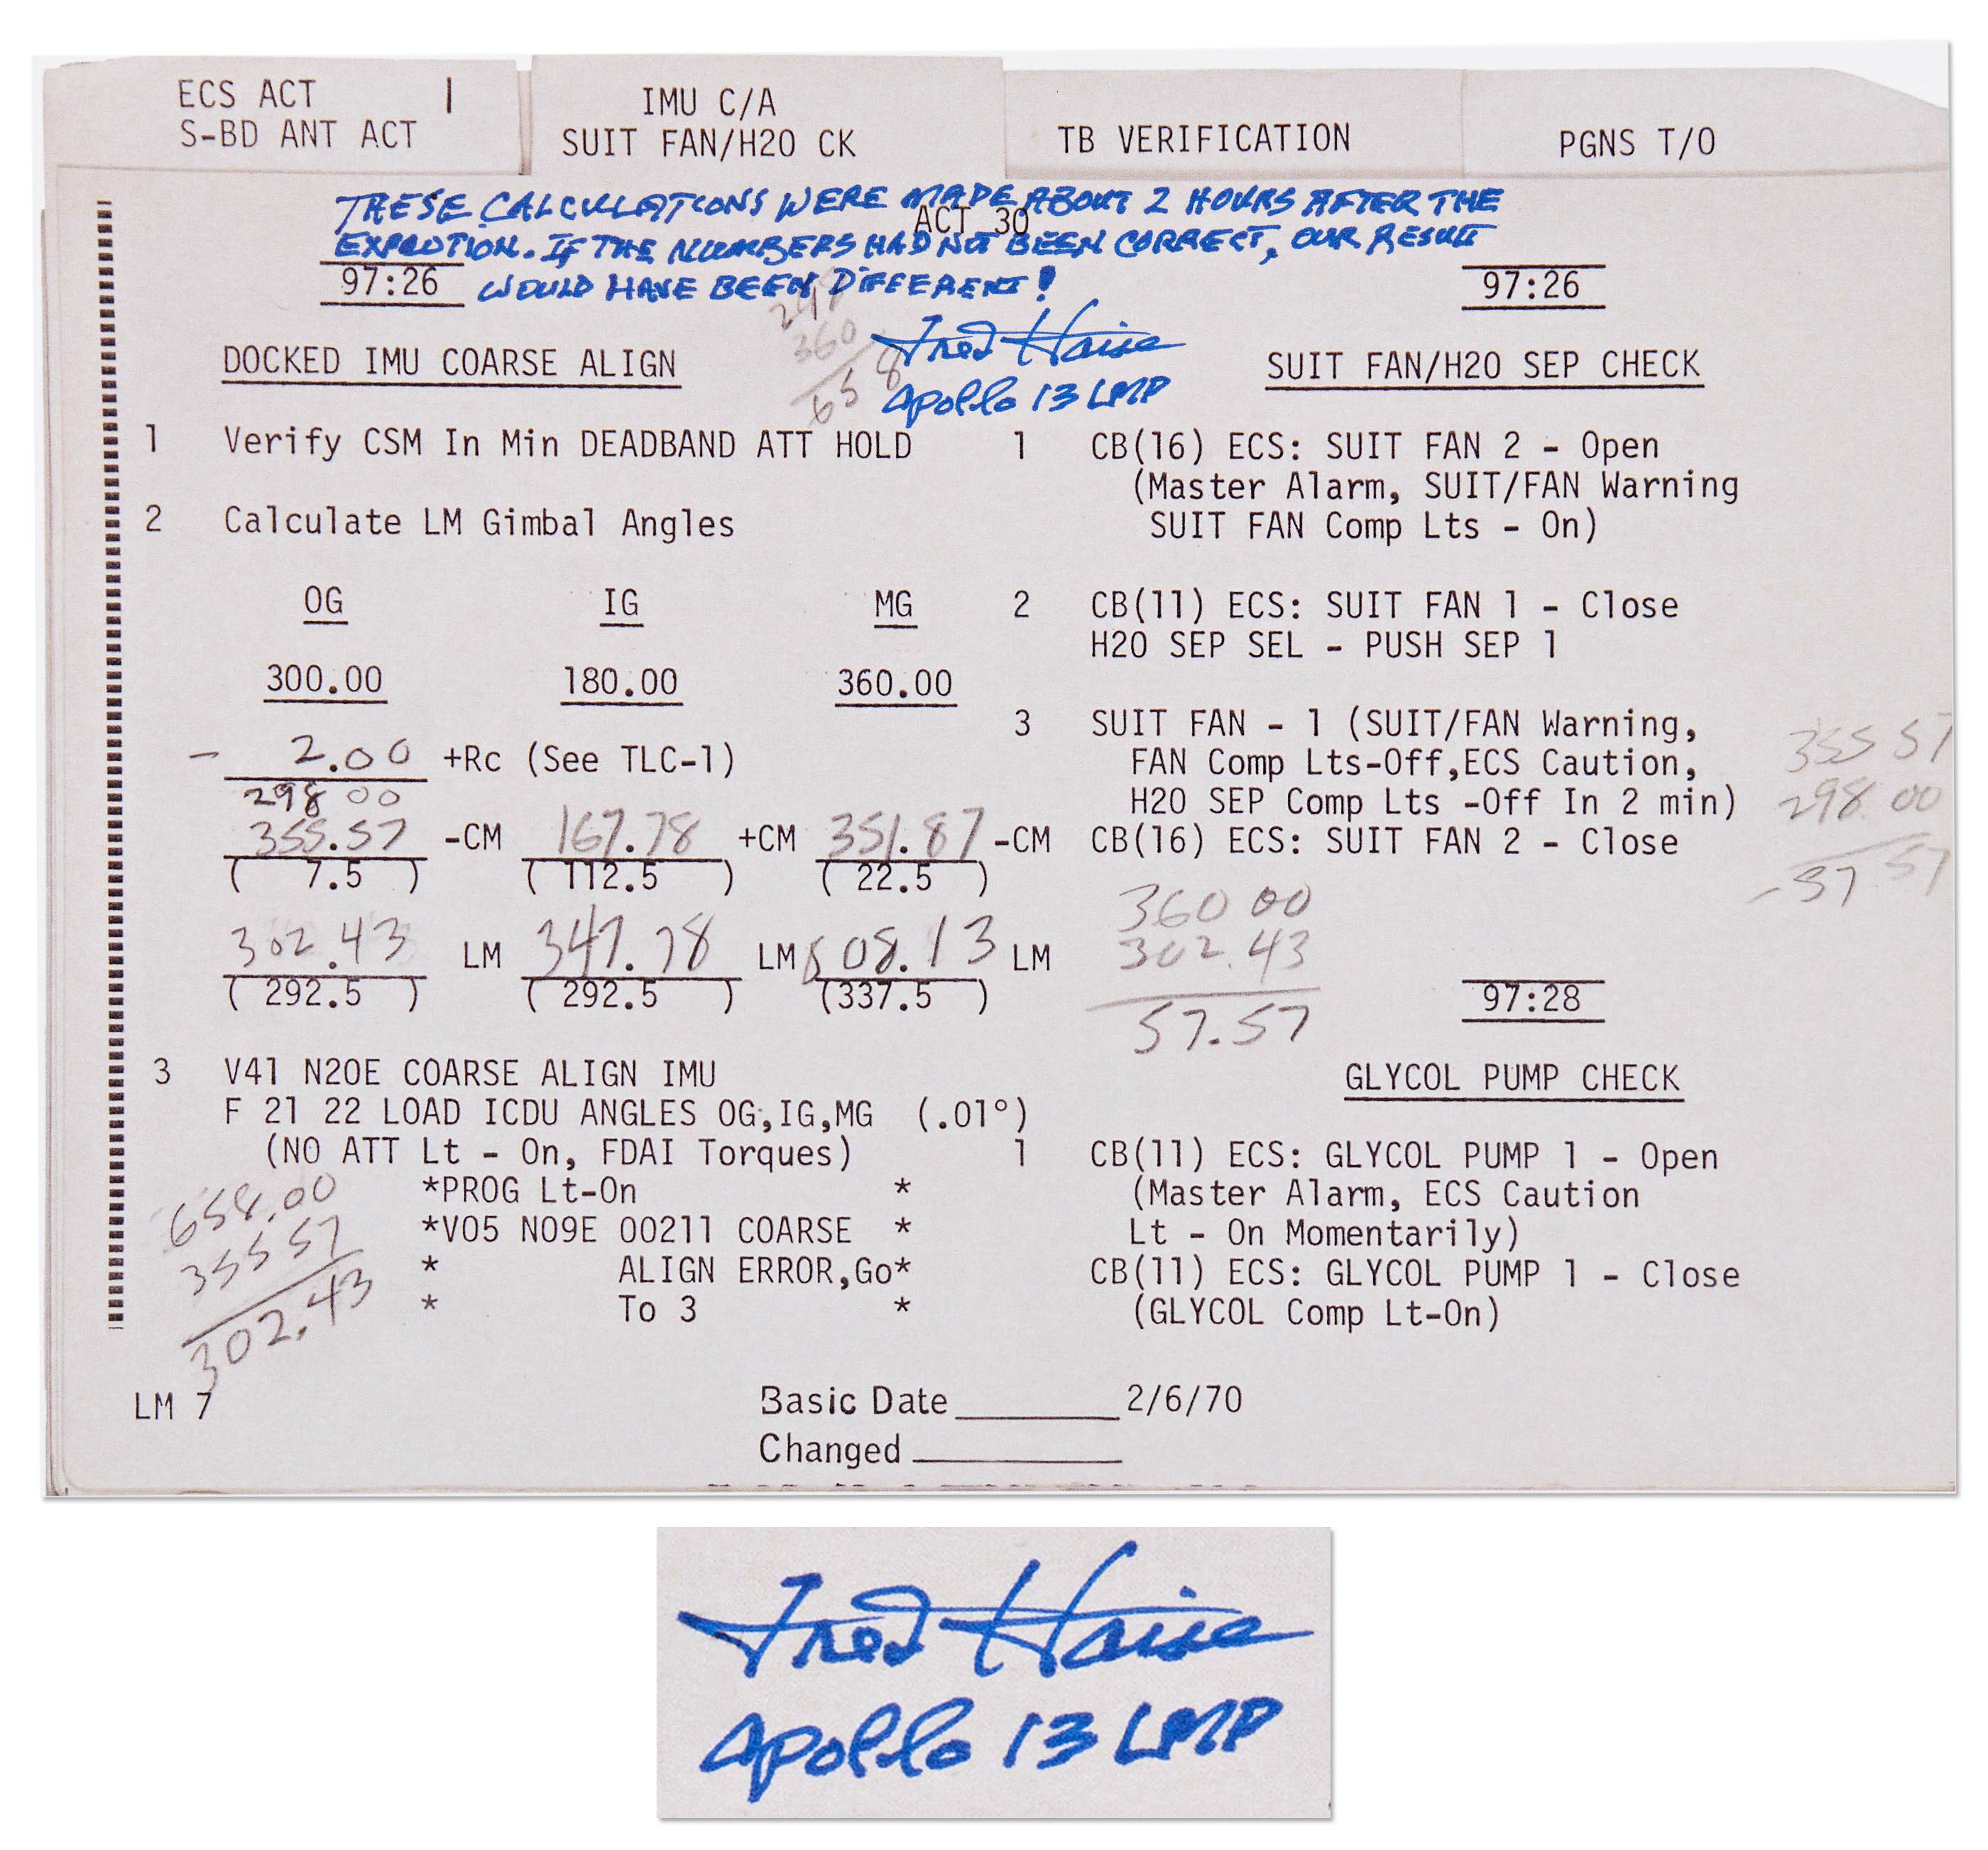 ECS ACT 1
S-BD ANT ACT
IMU C/A
SUIT FAN/H2O CK
TB VERIFICATION
PGNS T/O
THESE CALCULATIONS WERE MADE ABOUT 2 HOURS AFTER THE
ACT 30
EXPLOTION. IF THE NUMBERS HAD NOT BEEN CORRECT, OUR RESULT
WOULD HAVE BEEN DIFFERENT!
Fred Haise
Apollo 13 LMP
97:26
298
360
658
DOCKED IMU COARSE ALIGN
1 Verify CSM In Min DEADBAND ATT HOLD
2 Calculate LM Gimbal Angles
OG IG MG
300.00 180.00 360.00
- 2.00 +Rc (See TLC-1)
298 00
355.57 -CM 167.78 +CM 351.87 -CM
( 7.5 ) ( 112.5 ) ( 22.5 )
302.43 LM 347.78 LM 08.13 LM
( 292.5 ) ( 292.5 ) (337.5 )
3 V41 N20E COARSE ALIGN IMU
F 21 22 LOAD ICDU ANGLES OG,IG,MG (.01°)
(NO ATT Lt - On, FDAI Torques)
*PROG Lt-On *
*V05 N09E 00211 COARSE *
* ALIGN ERROR,Go*
* To 3 *
658.00
355 57
302.43
97:26
SUIT FAN/H2O SEP CHECK
1 CB(16) ECS: SUIT FAN 2 - Open
(Master Alarm, SUIT/FAN Warning
SUIT FAN Comp Lts - On)
2 CB(11) ECS: SUIT FAN 1 - Close
H2O SEP SEL - PUSH SEP 1
3 SUIT FAN - 1 (SUIT/FAN Warning,
FAN Comp Lts-Off,ECS Caution,
H2O SEP Comp Lts -Off In 2 min)
CB(16) ECS: SUIT FAN 2 - Close
355 57
298.00
-57 57
360 00
302.43
57.57
97:28
GLYCOL PUMP CHECK
1 CB(11) ECS: GLYCOL PUMP 1 - Open
(Master Alarm, ECS Caution
Lt - On Momentarily)
CB(11) ECS: GLYCOL PUMP 1 - Close
(GLYCOL Comp Lt-On)
LM 7
Basic Date 2/6/70
Changed
Fred Haise
Apollo 13 LMP